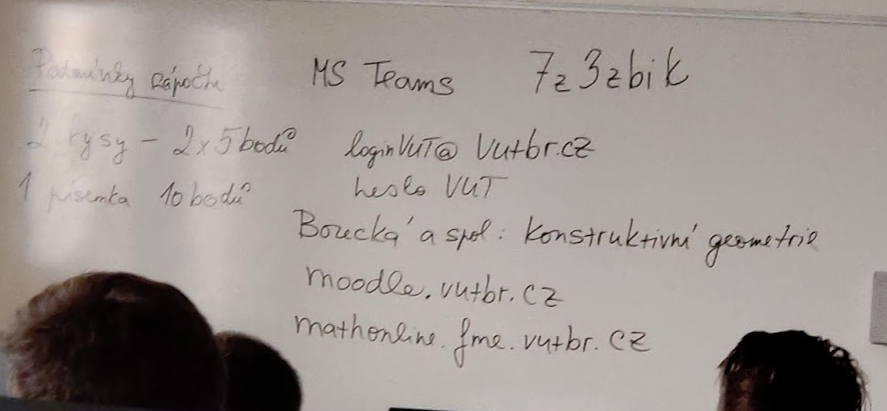 Podmínky zápočtu
2 rysy - 2x5 bodů
1 písemka 10 bodů
MS Teams 7z3zbik
loginVUT@vutbr.cz
heslo VUT
Borecká a spol: Konstruktivní geometrie
moodle.vutbr.cz
mathonline.fme.vutbr.cz